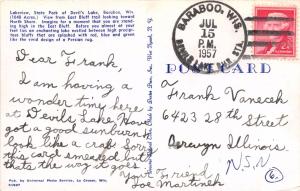 Lakeview, State Park of Devil's Lake, Baraboo, Wis.
(1040 Acres.) View from East Bluff trail looking toward
North Shore. Imagine for a moment that you are stand-
ing high in the East Bluff. Before you almost at your
feet lies an enchanting lake nestled between high precipi-
tous bluffs that are splashed with red, blue and green
like the vivid design of a Persian rug.
BARABOO, WIS.
JUL
15
P.M.
1957
POSTCARD
Dear Frank,
I am having a
wonder time here
at Devils Lake Now
got a good sunburn
look like a crab. Sorry
this card smeared, but
thats the way it goes
Your Friend
Joe Martinek
Frank Vanecek
6432 28th street
Berwyn Illinois.
U.S.A
6.
Pub. by Universal Photo Service, La Crosse, Wis.